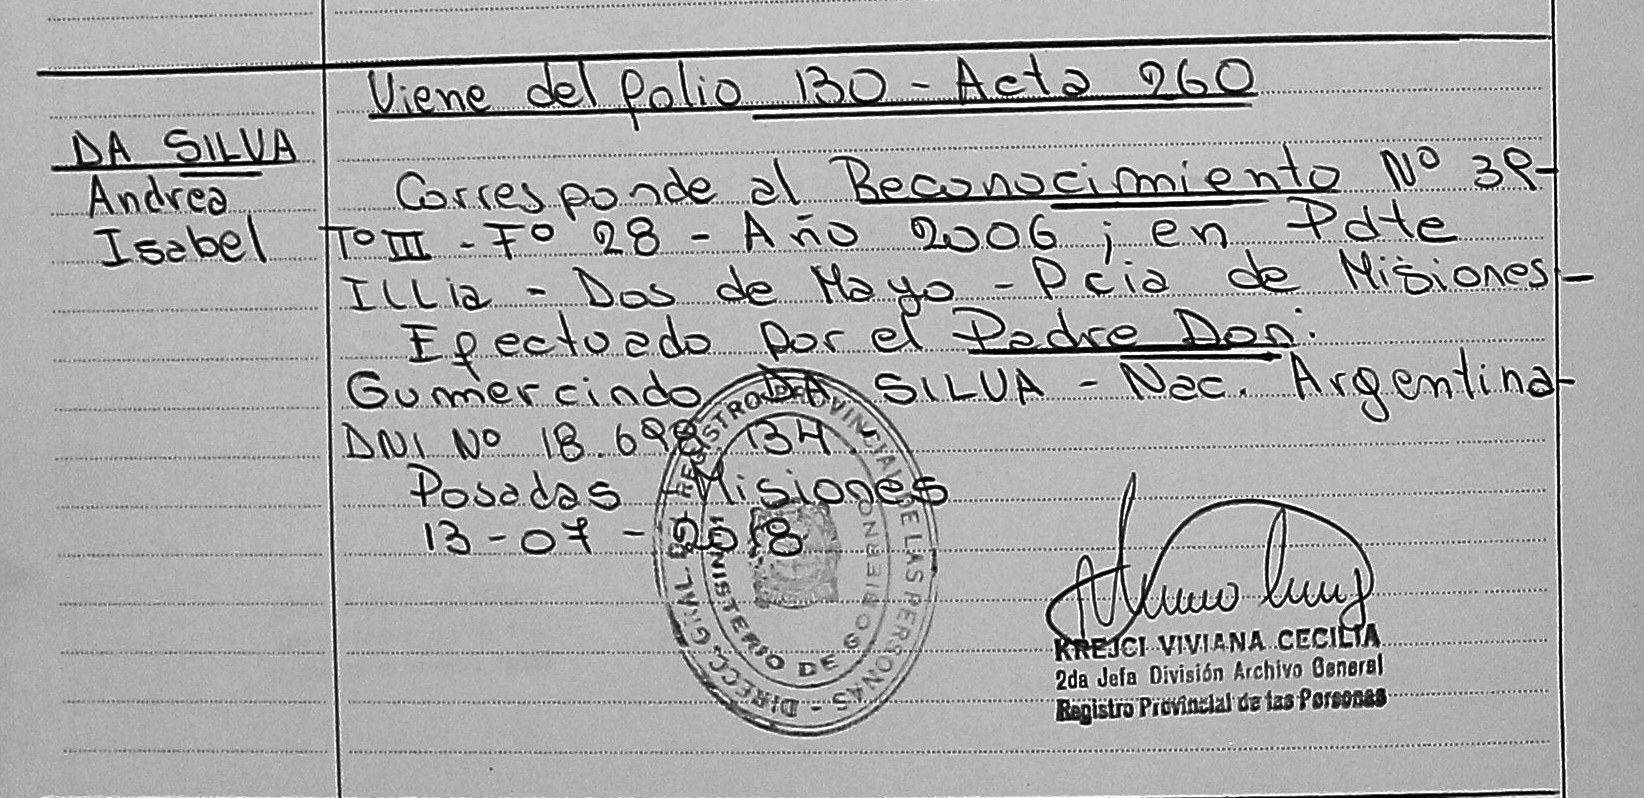 Viene del folio 130 - Acta 260
DA SILVA
Andrea
Isabel
Corresponde al Reconocimiento Nº 39-
Tº III - Fº 28 - Año 2006 ; en Pdte
Illia - Dos de Mayo - Pcia de Misiones -
Efectuado por el Padre Don:
Gumercindo DA SILVA - Nac. Argentina -
DNI Nº 18.698.134.
Posadas - Misiones
13-07-2018
DIRECC. GRAL. DE REGISTRO PROVINCIAL DE LAS PERSONAS -
MINISTERIO DE GOBIERNO
KREJCI VIVIANA CECILIA
2da Jefa División Archivo General
Registro Provincial de las Personas